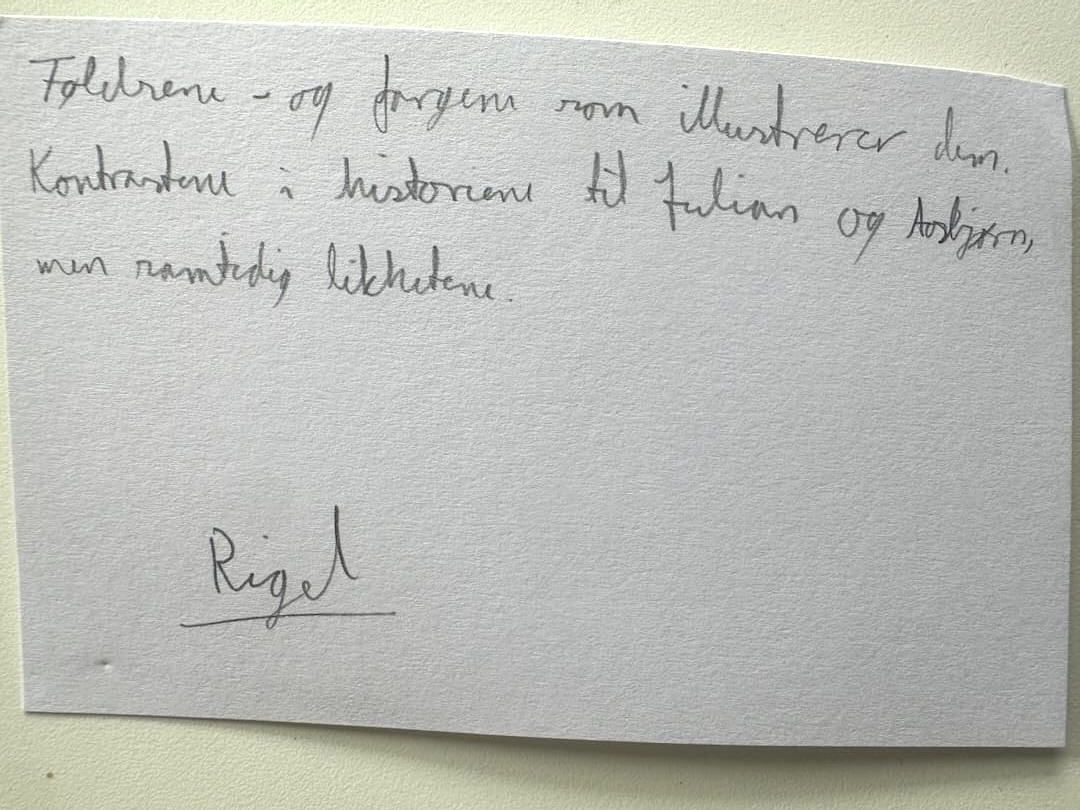 Foldrene - og fargene som illustrerer dem.
Kontrastene i historiene til Julian og Asbjørn,
men samtidig likhetene.
Rigel